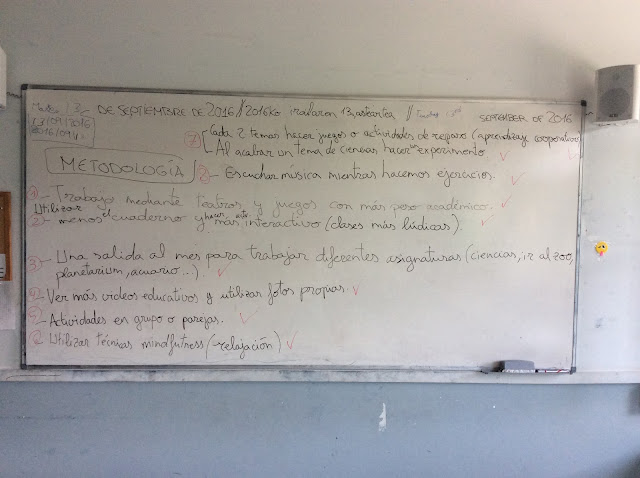 Martes 13 - DE SEPTIEMBRE DE 2016 // 2016ko irailaren 13, asteartea // Tuesday 13th SEPTEMBER OF 2016
13/09/2016
2016/09/13
7 - Cada 2 temas hacer juegos o actividades de repaso (aprendizaje cooperativo)
- Al acabar un tema de ciencias hacer un experimento
METODOLOGÍA
8 - Escuchar música mientras hacemos ejercicios.
1 - Trabajo mediante teatros y juegos con más peso académico.
Utilizar
2 - menos el cuaderno y hacer más interactivo (clases más lúdicas).
3 - Una salida al mes para trabajar diferentes asignaturas (ciencias, ir al zoo,
planetarium, acuario...)
4 - Ver más videos educativos y utilizar fotos propias.
- Actividades en grupo o parejas.
Utilizar técnicas mindfutness (relajación)